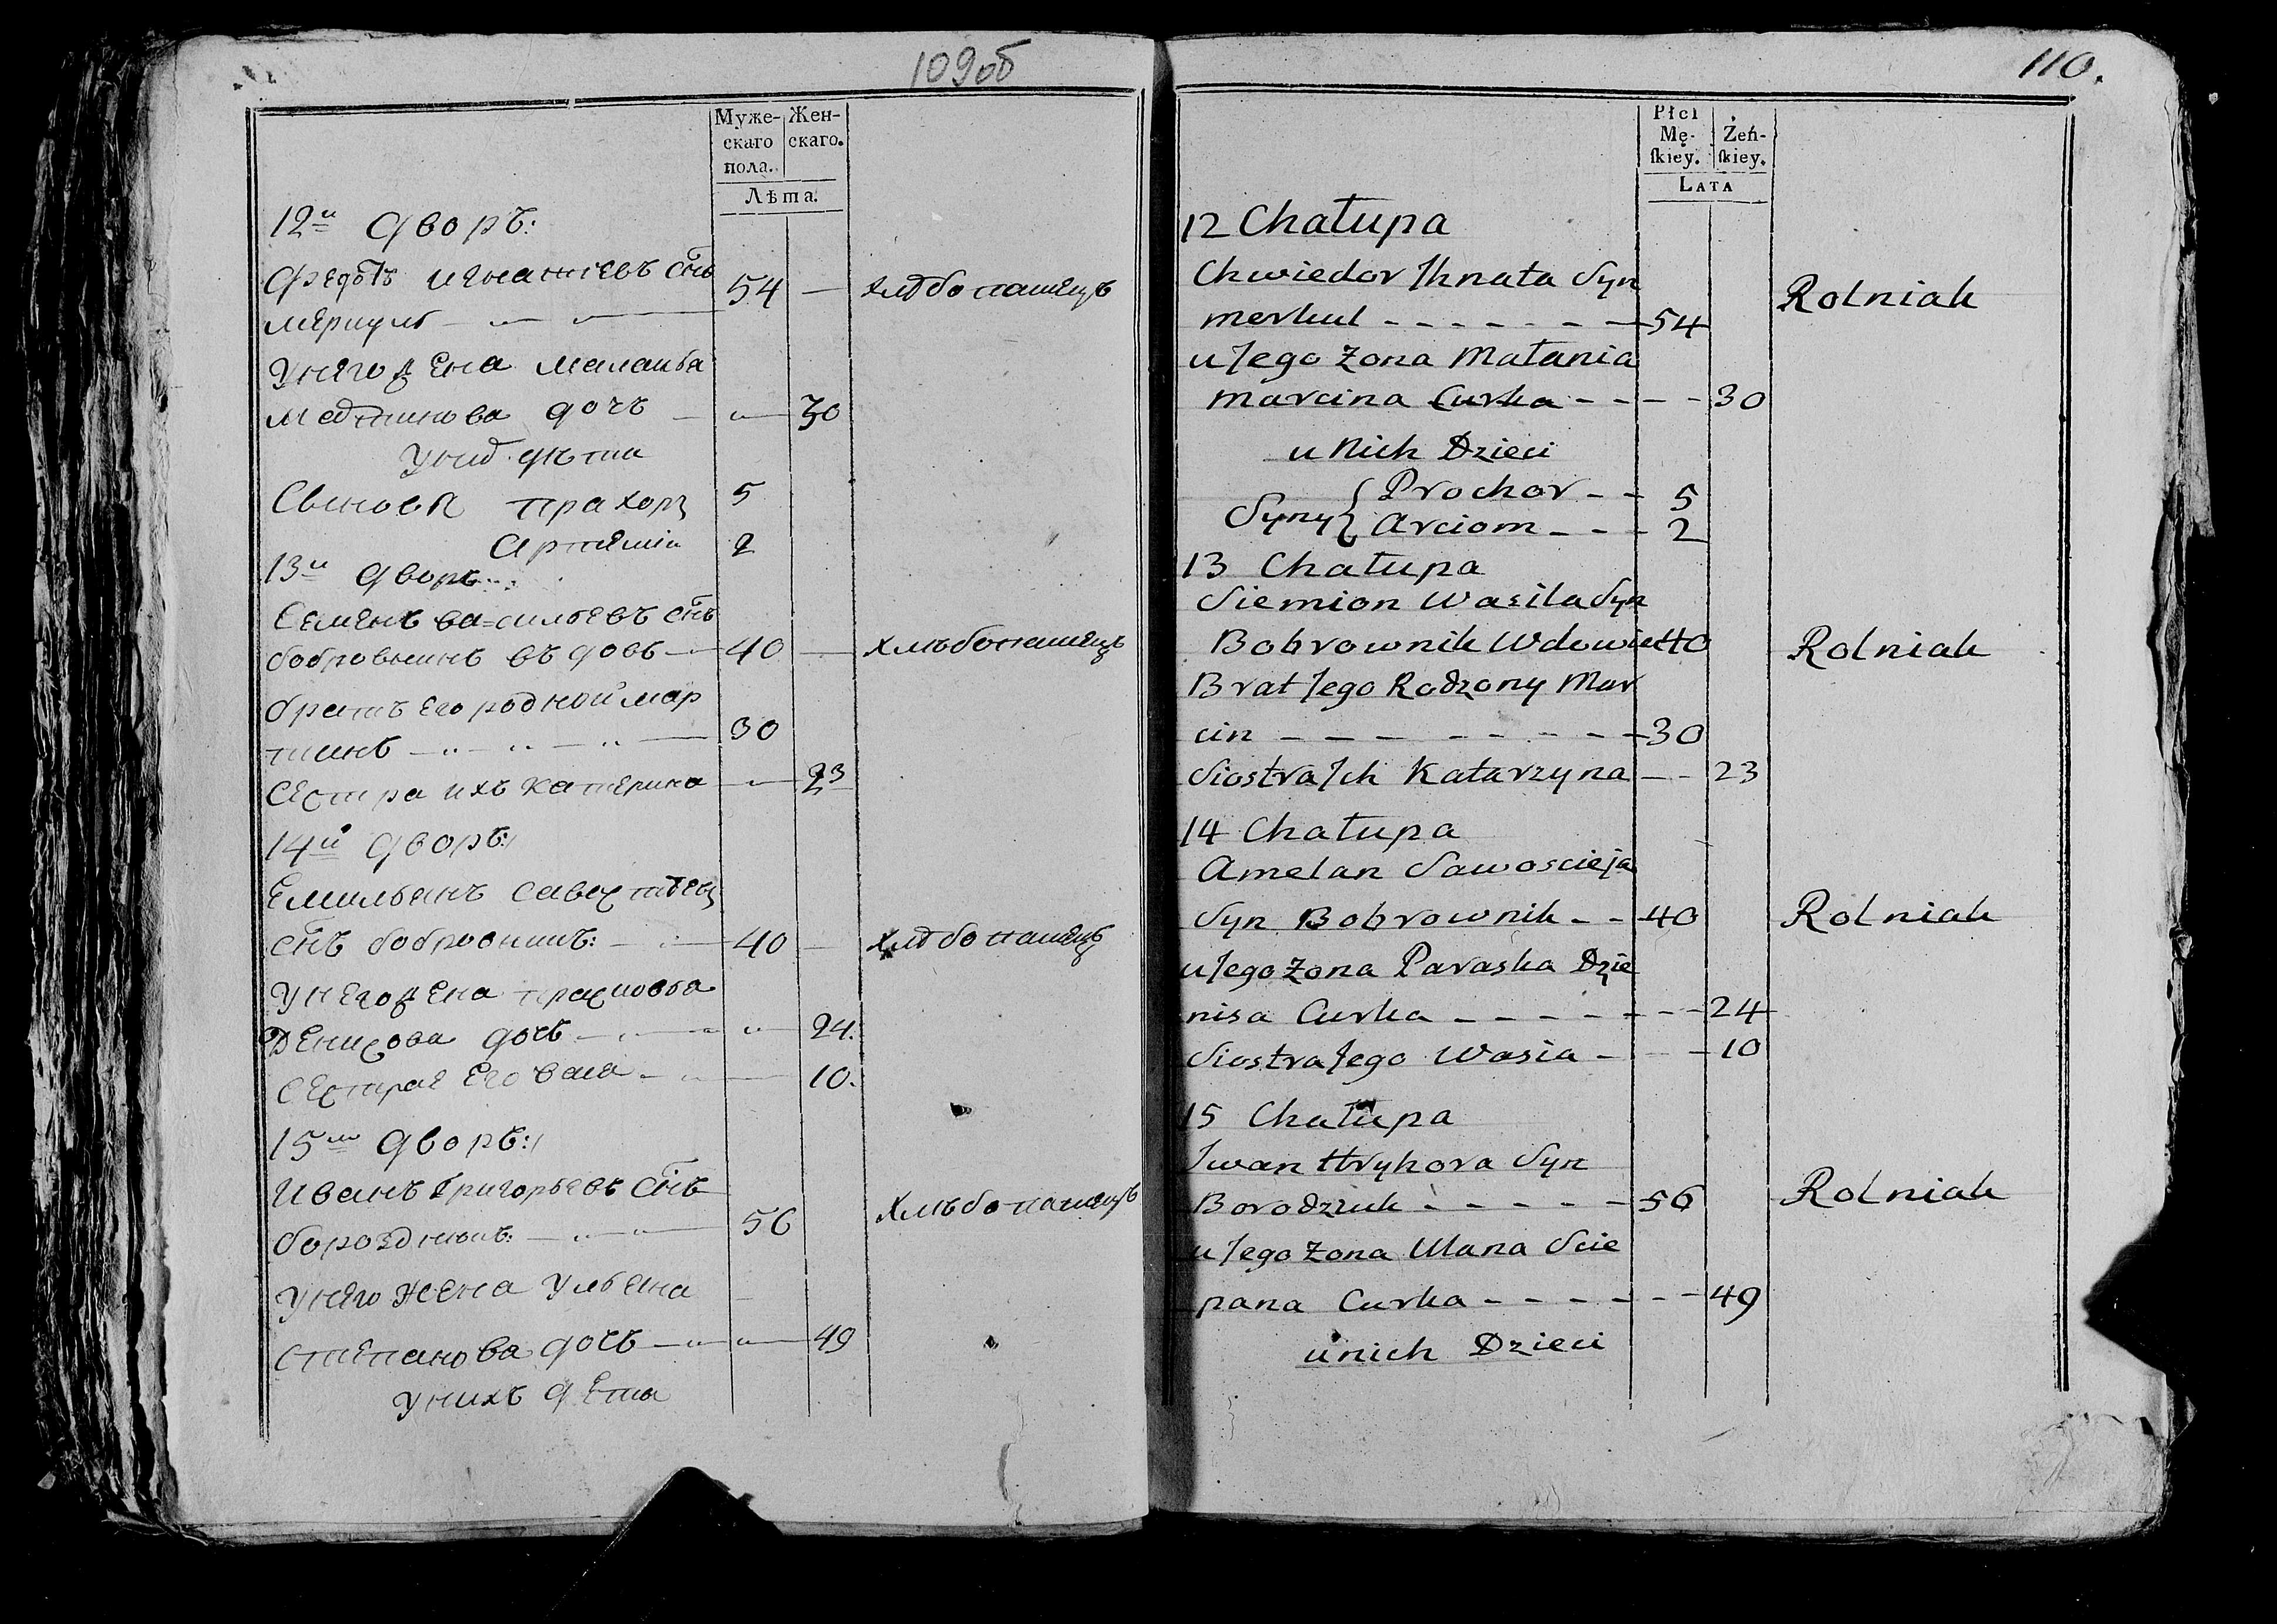 109об
Муже- Жен-
скаго скаго.
пола.
Лѣта.
12й дворъ:
Федотъ игнатіевъ снъ
меркуль 54 — хлѣбопашецъ
у него жена маланья
мартинова дочь — 30
у них дѣти
Сыновья прахоръ 5
Артемій 2
13й дворъ:
Семенъ ва=сильевъ снъ
бобровникъ вдовъ — 40 — хлѣбопашецъ
братъ его родной мар
тинъ 30
сестра ихъ катерина — 23
14й дворъ:
Емильянъ савостьевъ
снъ бобровникъ: 40 — хлѣбопашецъ
у него жена прасковья
Денисова дочь 24.
сестра его вася 10.
15й дворъ:
Иванъ Григорьевъ снъ
бороздюкъ: 56 хлѣбопашецъ
у него жена Ульяна
степанова дочь 49
у нихъ дети
110.
Płci
Mę- Żeń-
skiey. skiey.
LATA
12 Chałupa
Chwiedor Ihnata Syn
merkul 54 Rolnik
u Jego żona Małania
marcina Curka 30
u Nich Dzieci
Syny { Prochor 5
Arciom 2
13 Chałupa
Siemion Wasila Syn
Bobrownik Wdowiec 40 Rolnik
Brat Jego Rodzony Mar
cin 30
Siostra Ich Katarzyna 23
14 Chałupa
Amelan Sawoscieja
Syn Bobrownik 40 Rolnik
u Jego żona Paraska Dzie
nisa Curka 24
Siostra Jego Wasia 10
15 Chałupa
Iwan Hryhora Syn
Borodziuk 56 Rolnik
u Jego żona Ulana Scie
pana Curka 49
u nich Dzieci